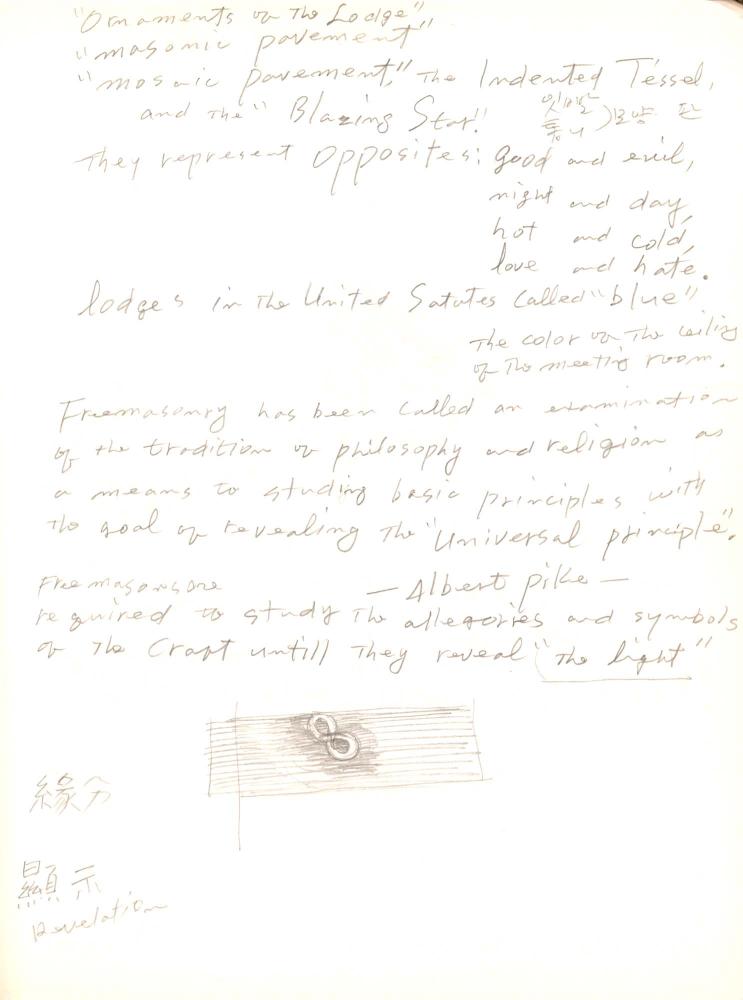 "Ornaments of The Lodge",
"masonic pavement"
"mosaic pavement," The Indented Tessel,
and The "Blazing Star."
잇빨
톱니) 모양 판
They represent opposites: good and evil,
night and day,
hot and cold,
love and hate.
lodges in The United Satutes called "blue"
The color of The ceiling
of The meeting room.
Freemasonry has been called an examination
of the tradition of philosophy and religion as
a means to studing basic principles with
The goal of revealing The "Universal principle".
— Albert pike —
Freemasons are
required to study The allegories and symbols
of The Craft untill They reveal "The light"
緣分
顯示
Revelation